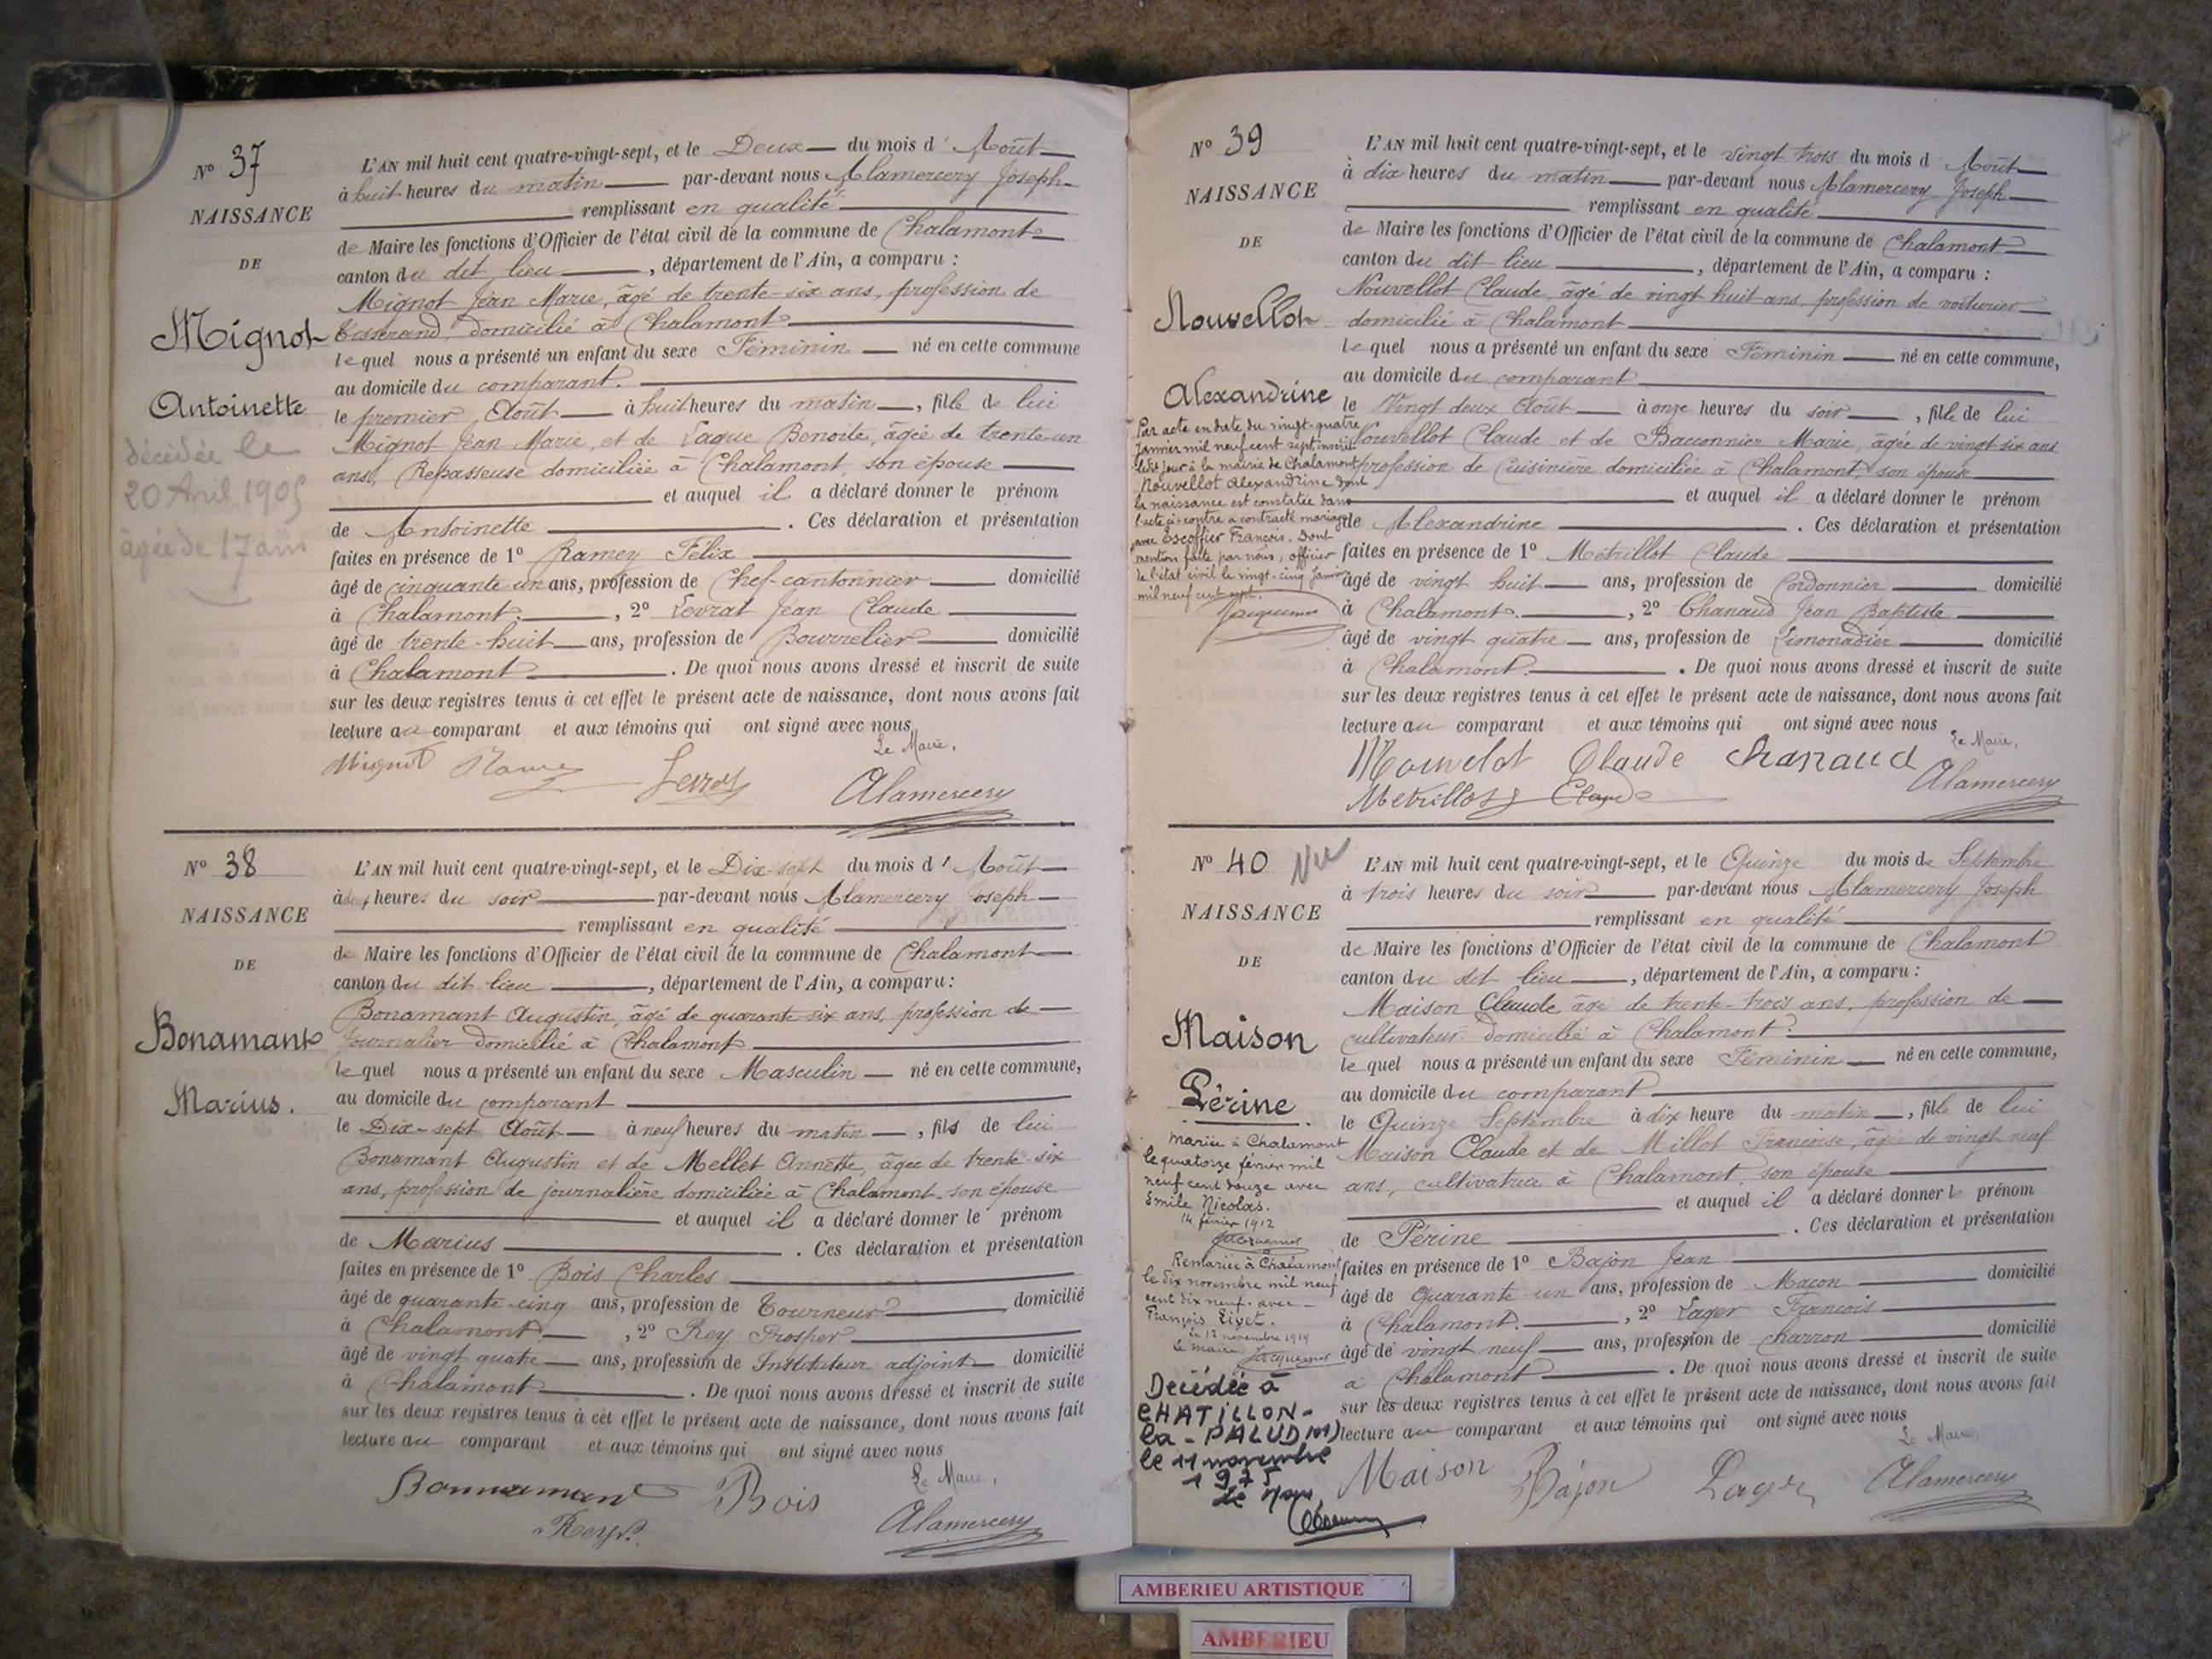 N° 37
NAISSANCE
DE
Mignot
Antoinette
décédée le
20 Avril 1905
âgée de 17 ans
L'AN mil huit cent quatre-vingt-sept, et le Deux du mois d' Août
à huit heures du matin par-devant nous Alamercery Joseph
remplissant en qualité
de Maire les fonctions d'Officier de l'état civil de la commune de Chalamont
canton du dit lieu, département de l'Ain, a comparu :
Mignot Jean Marie, âgé de trente-six ans, profession de
Tisserand, domicilié à Chalamont
lequel nous a présenté un enfant du sexe Féminin né en cette commune
au domicile du comparant.
le premier Août à huit heures du matin, fille de lui
Mignot Jean Marie, et de Lague Benoite, âgée de trente-un
ans, Repasseuse domiciliée à Chalamont, son épouse
et auquel il a déclaré donner le prénom
de Antoinette. Ces déclaration et présentation
faites en présence de 1° Ramey Félix
âgé de cinquante un ans, profession de Chef-cantonnier domicilié
à Chalamont, 2° Levrat Jean Claude
âgé de trente-huit ans, profession de Bourrelier domicilié
à Chalamont. De quoi nous avons dressé et inscrit de suite
sur les deux registres tenus à cet effet le présent acte de naissance, dont nous avons fait
lecture au comparant et aux témoins qui ont signé avec nous
Le Maire,
Mignot Ramey Levrat Alamercery
N° 38
NAISSANCE
DE
Bonamant
Marius.
L'AN mil huit cent quatre-vingt-sept, et le Dix-sept du mois d' Août
à heures du soir par-devant nous Alamercery Joseph
remplissant en qualité
de Maire les fonctions d'Officier de l'état civil de la commune de Chalamont
canton du dit lieu, département de l'Ain, a comparu :
Bonamant Augustin, âgé de quarante six ans, profession de
Journalier domicilié à Chalamont
lequel nous a présenté un enfant du sexe Masculin né en cette commune,
au domicile du comparant
le Dix-sept Août à neuf heures du matin, fils de lui
Bonamant Augustin et de Mellet Annette, âgée de trente-six
ans, profession de journalière domiciliée à Chalamont son épouse
et auquel il a déclaré donner le prénom
de Marius. Ces déclaration et présentation
faites en présence de 1° Bois Charles
âgé de quarante-cinq ans, profession de Tourneur domicilié
à Chalamont, 2° Rey Prosper
âgé de vingt quatre ans, profession de Instituteur adjoint domicilié
à Chalamont. De quoi nous avons dressé et inscrit de suite
sur les deux registres tenus à cet effet le présent acte de naissance, dont nous avons fait
lecture au comparant et aux témoins qui ont signé avec nous
Le Maire,
Bonnamant Bois
Rey P. Alamercery
N° 39
NAISSANCE
DE
Nouvellot
Alexandrine
Par acte en date du vingt-quatre
janvier mil neuf cent sept inscrit
ledit jour à la mairie de Chalamont
Nouvellot Alexandrine dont
la naissance est constatée dans
l'acte ci-contre a contracté mariage
avec Escoffier François. Dont
mention faite par nous, officier
de l'état civil le vingt-cinq janvier
mil neuf cent sept.
Jacquemet
L'AN mil huit cent quatre-vingt-sept, et le vingt trois du mois d Août
à dix heures du matin par-devant nous Alamercery Joseph
remplissant en qualité
de Maire les fonctions d'Officier de l'état civil de la commune de Chalamont
canton du dit lieu, département de l'Ain, a comparu :
Nouvellot Claude, âgé de vingt huit ans, profession de voiturier
domicilié à Chalamont
lequel nous a présenté un enfant du sexe Féminin né en cette commune,
au domicile du comparant
le Vingt deux Août à onze heures du soir, fille de lui
Nouvellot Claude et de Bacconnier Marie, âgée de vingt-six ans
profession de Cuisinière domiciliée à Chalamont, son épouse
et auquel il a déclaré donner le prénom
de Alexandrine. Ces déclaration et présentation
faites en présence de 1° Métrillot Claude
âgé de vingt huit ans, profession de Cordonnier domicilié
à Chalamont., 2° Chanaud Jean Baptiste
âgé de vingt quatre ans, profession de Limonadier domicilié
à Chalamont. De quoi nous avons dressé et inscrit de suite
sur les deux registres tenus à cet effet le présent acte de naissance, dont nous avons fait
lecture au comparant et aux témoins qui ont signé avec nous
Le Maire,
Nouvelot Claude Chanaud
Metrillot Claude Alamercery
N° 40
NAISSANCE
DE
Maison
Périne
mariée à Chalamont
le quatorze février mil
neuf cent douze avec
Emile Nicolas.
14 février 1912
Jacquemet
Remariée à Chalamont
le dix novembre mil neuf
cent dix neuf. avec
François Livet.
Le 12 novembre 1919
le maire Jacquemet
Décédée à
CHATILLON-
la-PALUD (01)
le 11 novembre
1975
L'AN mil huit cent quatre-vingt-sept, et le Quinze du mois de Septembre
à trois heures du soir par-devant nous Alamercery Joseph
remplissant en qualité
de Maire les fonctions d'Officier de l'état civil de la commune de Chalamont
canton du dit lieu, département de l'Ain, a comparu :
Maison Claude âgé de trente-trois ans, profession de
cultivateur domicilié à Chalamont.
lequel nous a présenté un enfant du sexe Féminin né en cette commune,
au domicile du comparant
le Quinze Septembre à dix heure du matin, fille de lui
Maison Claude et de Millot Françoise, âgée de vingt neuf
ans, cultivatrice à Chalamont, son épouse
et auquel il a déclaré donner le prénom
de Périne. Ces déclaration et présentation
faites en présence de 1° Bajon Jean
âgé de Quarante-un ans, profession de Maçon domicilié
à Chalamont., 2° Lager François
âgé de vingt neuf ans, profession de charron domicilié
à Chalamont. De quoi nous avons dressé et inscrit de suite
sur les deux registres tenus à cet effet le présent acte de naissance, dont nous avons fait
lecture au comparant et aux témoins qui ont signé avec nous
Le Maire,
Maison Bajon Lager Alamercery
AMBERIEU ARTISTIQUE
AMBERIEU